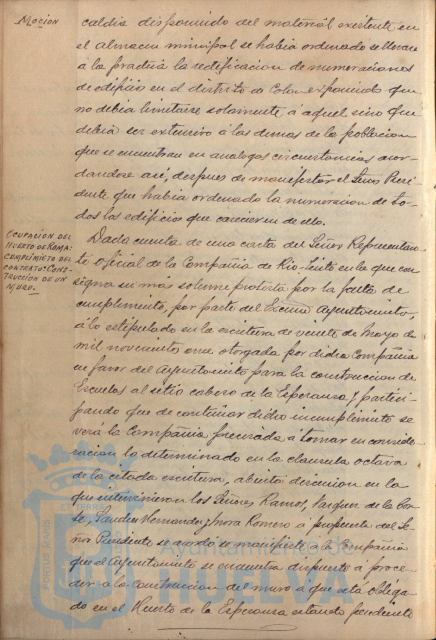 Mocion
caldia disponiendo del material existente en
el almacen municipal se habia ordenado se llevara
á la practica la rectificacion de numeraciones
de edificios en el distrito de Colon exponiendo que
no debia limitarse solamente á aquel sino que
debia ser extensivo á los demas de la poblacion
que se encuentran en analogas circunstancias acor-
dandose asi, despues de manifestar el Señor Presi-
dente que habia ordenado la numeracion de to-
dos los edificios que carecieren de ello.
OCUPACION DEL
HUERTO DE RAMA:
CUMPLIMIENTO DEL
CONTRATO: CONS-
TRUCCION DE UN
MURO.
Dada cuenta de una carta del Señor Representan-
te oficial de la Compañia de Rio-Tinto en la que con
signa su mas solemne protesta por la falta de
cumplimiento, por parte del Excmo Ayuntamiento,
á lo estipulado en la escritura de veinte de Mayo de
mil novecientos once otorgada por dicha Compañia
en favor del Ayuntamiento para la construccion de
Escuelas al sitio cabezo de la Esperanza, y partici-
pando que de continuar dicho incumplimiento se
verá la Compañia precisada á tomar en conside-
racion lo determinado en la clausula octava
de la citada escritura, abierta discusion en la
que intervinieron los Señores Ramos, Vazquez de la Cor-
te, Sanchez Hernandez y Mora Romero á propuesta del Se-
ñor Presidente se acordó se manifieste á la Compañia
que el Ayuntamiento se encuentra dispuesto á proce-
der á la construccion del muro á que está obliga-
do en el Huerto de la Esperanza estando pendiente
Ayuntamiento de
HUELVA
PORTUS MARIS
ET TERRE